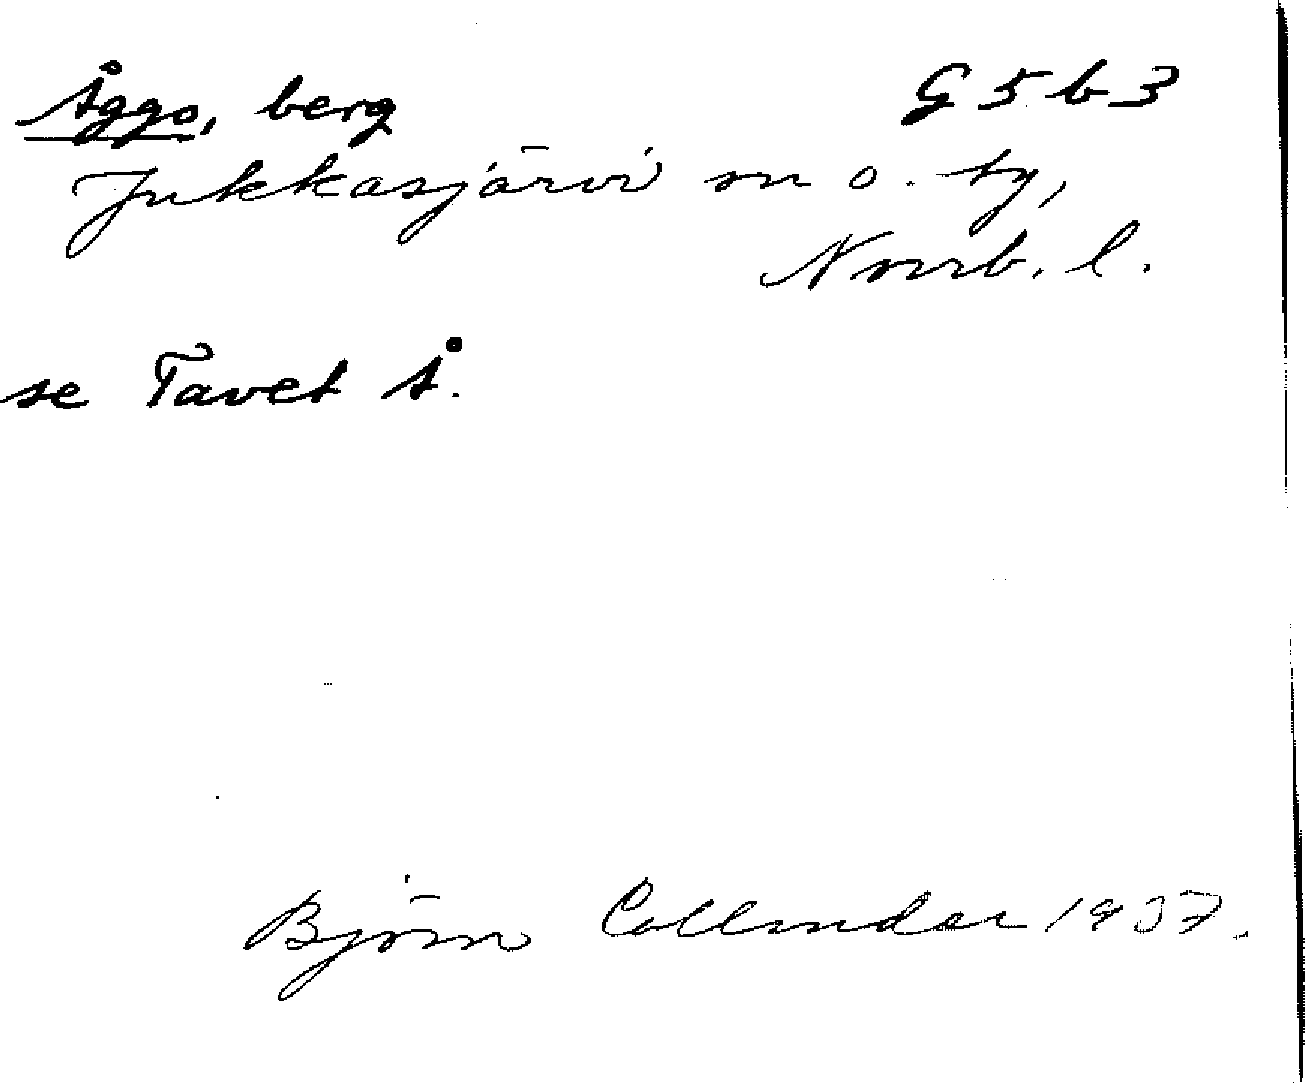 Åggo, berg G 5 b 3
Jukkasjärvi sn o. ty,
Norrb. l.
se Tavet Å.
Björn Collinder 1937.